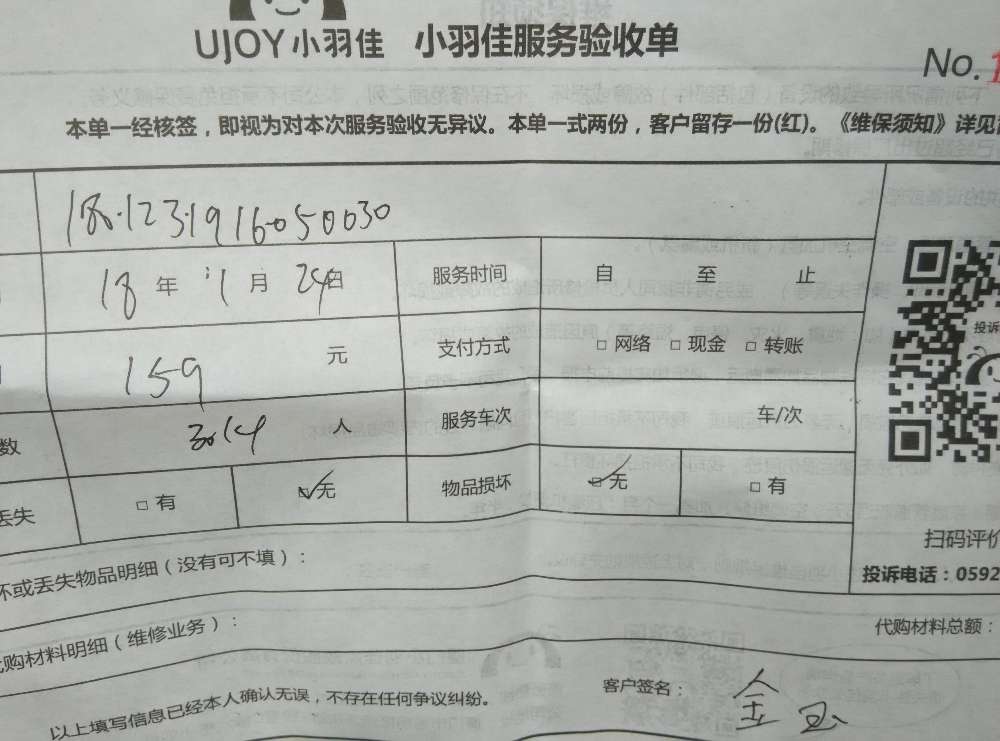 UJOY小羽佳 小羽佳服务验收单
No.1
本单一经核签，即视为对本次服务验收无异议。本单一式两份，客户留存一份(红)。《维保须知》详见
18年11月24日 服务时间 自 至 止
159 元 支付方式 □ 网络 □ 现金 □ 转账
数 人 服务车次 车/次
投诉
丢失 □ 有 □ 无 物品损坏 □ 无 □ 有
扫码评价
坏或丢失物品明细（没有可不填）：
投诉电话：0592
代购材料明细（维修业务）：
代购材料总额：
以上填写信息已经本人确认无误，不存在任何争议纠纷。
客户签名： 金玉